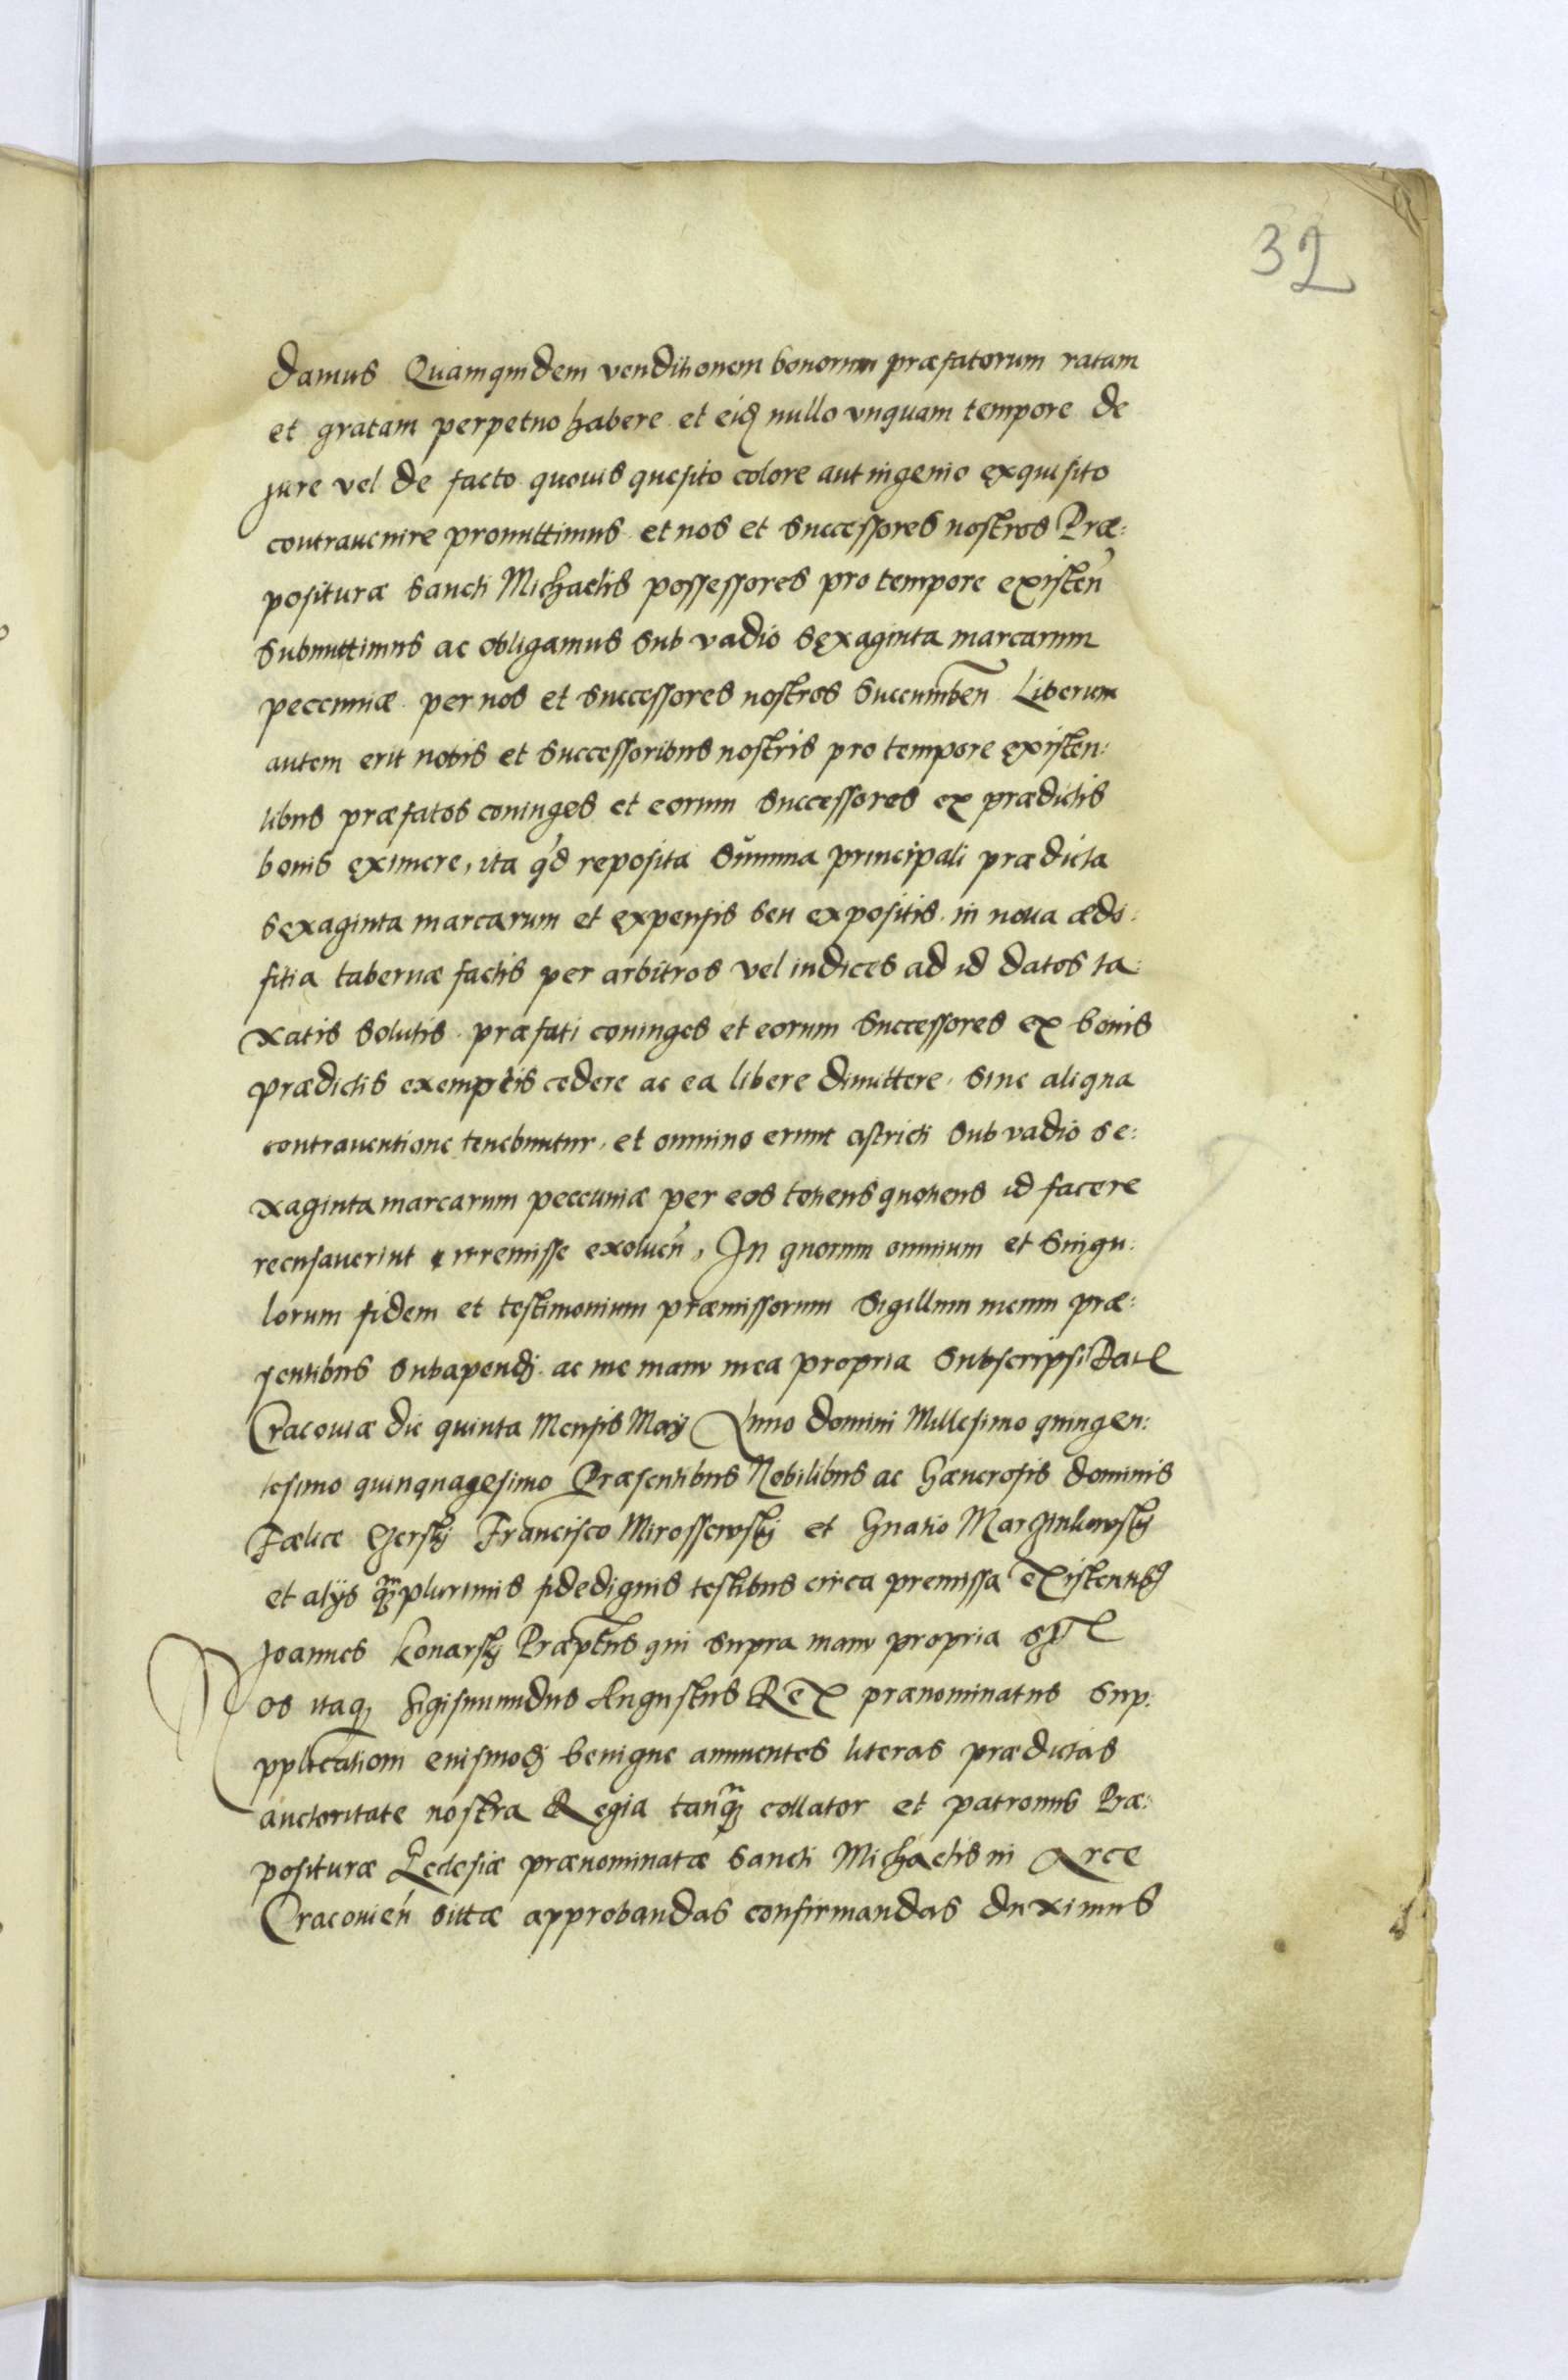 32
damus Quamquidem venditionem bonorum præfatorum ratam
et gratam perpetuo habere et eidem nullo vnquam tempore de
jure vel de facto quouis quesito colore aut ingenio exquisito
contrauenire promittimus et nos et successores nostros Præ:
posituræ Sancti Michaelis possessores pro tempore existen
submittimus ac obligamus sub vadio sexaginta marcarum
peccuniæ per nos et successores nostros succumben Liberum
autem erit nobis et successoribus nostris pro tempore existen:
tibus præfatos coniuges et eorum successores ex prædictis
bonis eximere, ita qd reposita summa principali prædicta
sexaginta marcarum et expensis seu expositis in noua ædi:
fitia tabernæ factis per arbitros vel iudices ad id datos ta:
xatis solutis præfati coniuges et eorum successores ex bonis
prædictis exemptis cedere ac ea libere dimittere sine aliqua
contrauentione tenebuntur, et omnino erunt astricti sub vadio se:
xaginta marcarum peccuniæ per eos totiens quotiens id facere
recusauerint irremisse exoluen, In quorum omnium et singu:
lorum fidem et testimonium præmissorum Sigillum meum præ:
sentibus subapendj ac me manu mea propria subscripsi Dat
Cracouiæ die quinta Mensis Maij Anno domini Millesimo quingen:
tesimo quinquagesimo Præsentibus Nobilibus ac Gænerosis dominis
Fælice Francisco Mirossewskj et Gnatio Marzinkowskj
et alijs qmplurimis fidedignis testibus circa premissa existentibus
Joannes Konarskj Præptus qui supra manu propria sst
Nos itaq Sigismundus Augustus Rex prænominatus sup:
pplicationi euismodj benigne annuentes literas prædictas
auctoritate nostra Regia tanq collator et patronus Præ:
posituræ Ecclesiæ prænominatæ Sancti Michaelis in Arce
Cracouien sittæ approbandas confirmandas duximus